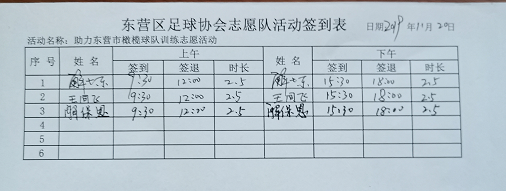 东营区足球协会志愿队活动签到表
日期2019年11月20日
活动名称：助力东营市橄榄球队训练志愿活动
序号 姓名 上午 姓名 下午
签到 签退 时长 签到 签退 时长
1 9:30 12:00 2.5 15:30 18:00 2.5
2 王同飞 9:30 12:00 2.5 王同飞 15:30 18:00 2.5
3 解保恩 9:30 12:00 2.5 解保恩 15:30 18:00 2.5
4
5
6